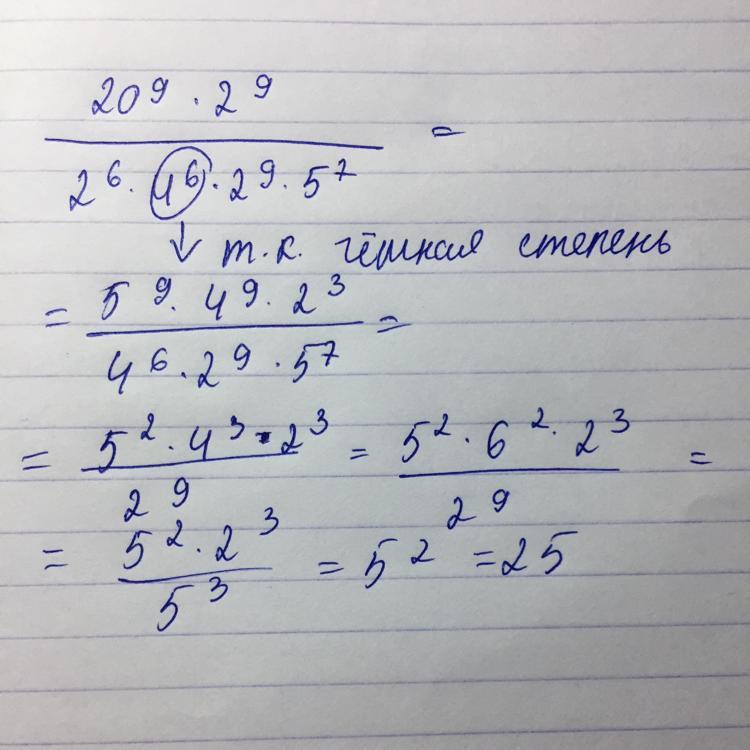 20⁹ · 2⁹
2⁶ · 4⁶ · 2⁹ · 5⁷ =
т.к. чётная степень
= 5⁹ · 4⁹ · 2³ / 4⁶ · 2⁹ · 5⁷ =
= 5² · 4³ · 2³ / 2⁹ = 5² · 6² · 2³ / 2⁹ =
= 5² · 2³ / 5³ = 5² = 25